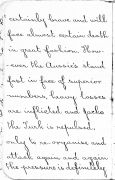 certainly brave and will
face almost certain death
in great fashion. How-
-ever the Aussie's stand
fast in face of superior
numbers, heavy losses
are inflicted and Jacko
the Turk is repulsed,
only to re-organise and
attack again and again
the pressure is definitely